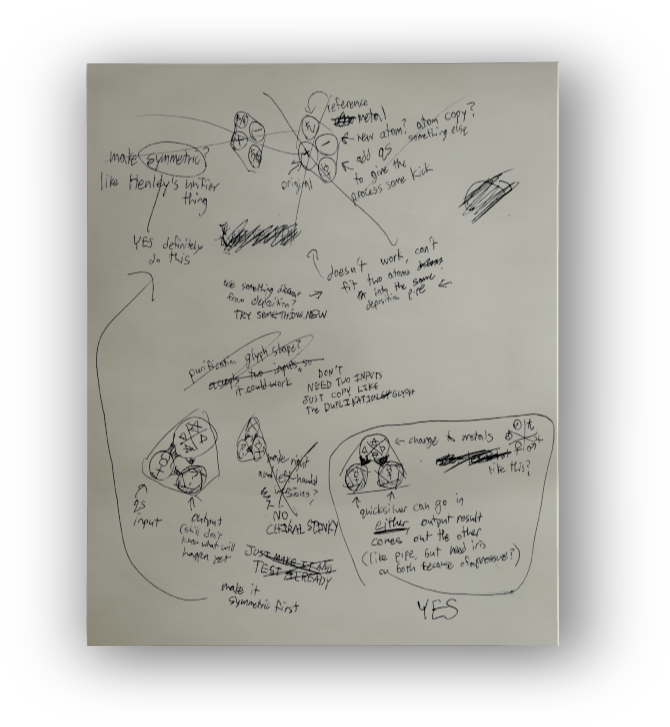 reference
metal
← new atom? atom copy?
something else
← add qs
to give the
process some kick
original
make symmetric?
like Henley's unifier
thing
YES definitely
do this
doesn't work, can't
fit two atoms
into the same
deposition pipe ←
use something different
from deposition? →
TRY SOMETHING NEW
purification glyph shape?
accepts two inputs, so
it could work
DON'T
NEED TWO INPUTS
JUST COPY LIKE
THE DUPLICATION GLYPH
qs
input
output
(still don't
know what will
happen yet
make right
and left hand
versions?
NO
CHIRAL STINKY
JUST MAKE IT AND
TEST ALREADY
make it
symmetric first
← change to metals
like this?
quicksilver can go in
either, output result
comes out the other
(like pipe, but need iris
on both because of pressure?)
YES